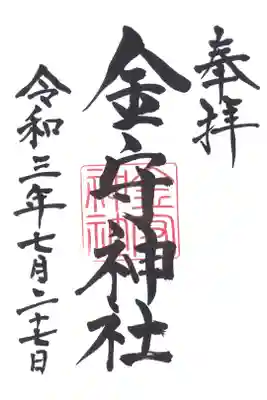 奉拝
金守神社
令和三年七月二十七日